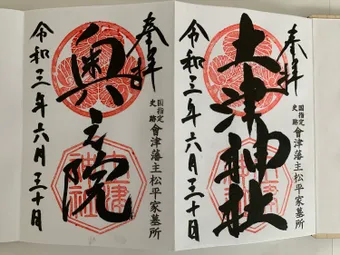 奉拝
土津神社
国指定
史跡
會津藩主松平家墓所
令和三年六月三十日
奉拝
奥之院
国指定
史跡
會津藩主松平家墓所
令和三年六月三十日
土津
神社
土津
神社